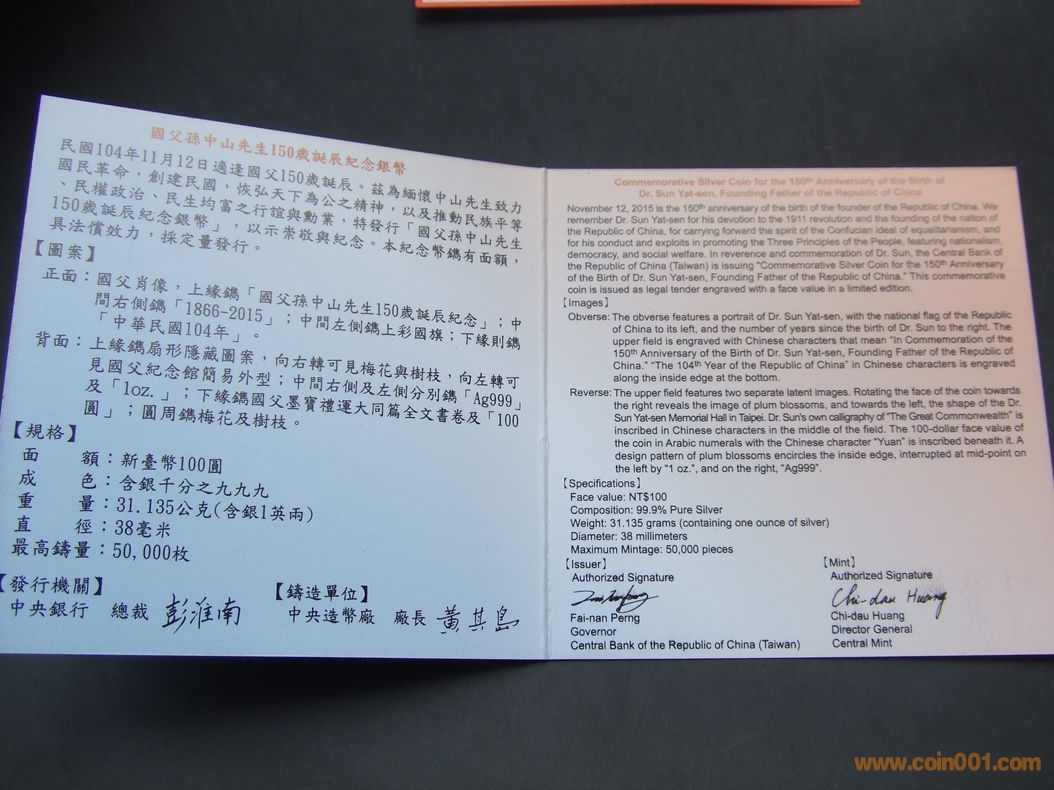 國父孫中山先生150歲誕辰紀念銀幣
民國104年11月12日適逢國父150歲誕辰。茲為緬懷中山先生致力
國民革命，創建民國，恢弘天下為公之精神，以及推動民族平等
、民權政治、民生均富之行誼與勳業，特發行「國父孫中山先生
150歲誕辰紀念銀幣」，以示崇敬與紀念。本紀念幣鐫有面額，
具法償效力，採定量發行。
【圖案】
正面：國父肖像，上緣鐫「國父孫中山先生150歲誕辰紀念」；中
間右側鐫「1866-2015」；中間左側鐫上彩國旗；下緣則鐫
「中華民國104年」。
背面：上緣鐫扇形隱藏圖案，向右轉可見梅花與樹枝，向左轉可
見國父紀念館簡易外型；中間右側及左側分別鐫「Ag999」
及「1oz.」；下緣鐫國父墨寶禮運大同篇全文書卷及「100
圓」；圓周鐫梅花及樹枝。
【規格】
面 額：新臺幣100圓
成 色：含銀千分之九九九
重 量：31.135公克(含銀1英兩)
直 徑：38毫米
最高鑄量：50,000枚
【發行機關】 【鑄造單位】
中央銀行 總裁 彭淮南 中央造幣廠 廠長 黃其島
Commemorative Silver Coin for the 150th Anniversary of the Birth of
Dr. Sun Yat-sen, Founding Father of the Republic of China
November 12, 2015 is the 150th anniversary of the birth of the founder of the Republic of China. We
remember Dr. Sun Yat-sen for his devotion to the 1911 revolution and the founding of the nation of
the Republic of China, for carrying forward the spirit of the Confucian ideal of equalitarianism, and
for his conduct and exploits in promoting the Three Principles of the People, featuring nationalism,
democracy, and social welfare. In reverence and commemoration of Dr. Sun, the Central Bank of
the Republic of China (Taiwan) is issuing "Commemorative Silver Coin for the 150th Anniversary
of the Birth of Dr. Sun Yat-sen, Founding Father of the Republic of China." This commemorative
coin is issued as legal tender engraved with a face value in a limited edition.
【Images】
Obverse: The obverse features a portrait of Dr. Sun Yat-sen, with the national flag of the Republic
of China to its left, and the number of years since the birth of Dr. Sun to the right. The
upper field is engraved with Chinese characters that mean "In Commemoration of the
150th Anniversary of the Birth of Dr. Sun Yat-sen, Founding Father of the Republic of
China." "The 104th Year of the Republic of China" in Chinese characters is engraved
along the inside edge at the bottom.
Reverse: The upper field features two separate latent images. Rotating the face of the coin towards
the right reveals the image of plum blossoms, and towards the left, the shape of the Dr.
Sun Yat-sen Memorial Hall in Taipei. Dr. Sun's own calligraphy of "The Great Commonwealth" is
inscribed in Chinese characters in the middle of the field. The 100-dollar face value of
the coin in Arabic numerals with the Chinese character "Yuan" is inscribed beneath it. A
design pattern of plum blossoms encircles the inside edge, interrupted at mid-point on
the left by "1 oz.", and on the right, "Ag999".
【Specifications】
Face value: NT$100
Composition: 99.9% Pure Silver
Weight: 31.135 grams (containing one ounce of silver)
Diameter: 38 millimeters
Maximum Mintage: 50,000 pieces
【Issuer】 【Mint】
Authorized Signature Authorized Signature
Chi-dau Huang
Fai-nan Perng Chi-dau Huang
Governor Director General
Central Bank of the Republic of China (Taiwan) Central Mint
www.coin001.com